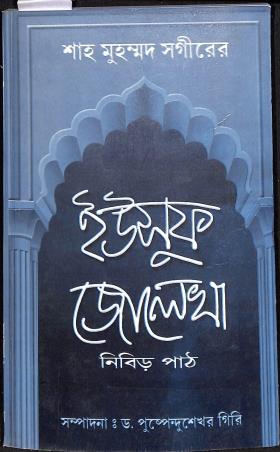 শাহ মুহম্মদ সগীরের
ইউসুফ
জোলেখা
নিবিড় পাঠ
সম্পাদনা : ড. পুষ্পেন্দুশেখর গিরি